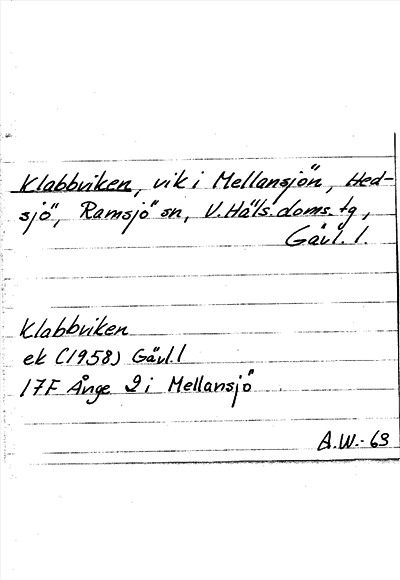 Klabbviken, vik i Mellansjön, Hed-
sjö, Ramsjö sn, V. Häls. doms. tg,
Gävl. l.
Klabbviken
ek (1958) Gävl. l
17F Ånge 2 i Mellansjö
A.W.-63